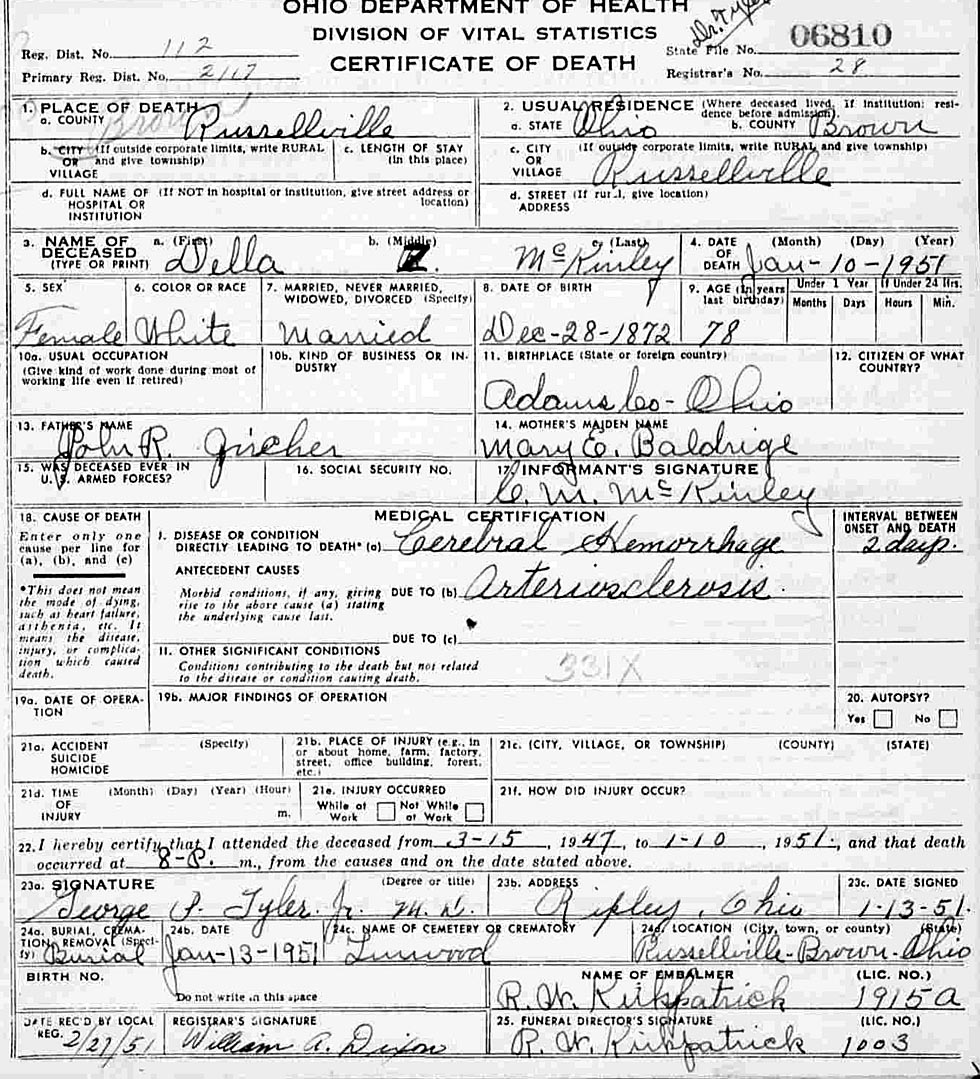 OHIO DEPARTMENT OF HEALTH
DIVISION OF VITAL STATISTICS
CERTIFICATE OF DEATH
Reg. Dist. No. 112
Primary Reg. Dist. No. 2117
Dr. Tyler
State File No. 06810
Registrar's No. 28
1. PLACE OF DEATH
a. COUNTY Brown Russellville
b. CITY (If outside corporate limits, write RURAL
OR and give township)
VILLAGE
c. LENGTH OF STAY
(in this place)
d. FULL NAME OF (If NOT in hospital or institution, give street address or
HOSPITAL OR location)
INSTITUTION
2. USUAL RESIDENCE (Where deceased lived, if institution: resi-
dence before admission).
a. STATE Ohio b. COUNTY Brown
c. CITY (If outside corporate limits, write RURAL and give township)
OR
VILLAGE Russellville
d. STREET (If rural, give location)
ADDRESS
3. NAME OF
DECEASED
(TYPE OR PRINT)
a. (First) Della
b. (Middle)
c. (Last) McKinley
4. DATE
OF
DEATH
(Month) (Day) (Year)
Jan-10-1951
5. SEX
Female
6. COLOR OR RACE
White
7. MARRIED, NEVER MARRIED,
WIDOWED, DIVORCED (Specify)
Married
8. DATE OF BIRTH
Dec-28-1872
9. AGE (In years
last birthday)
78
Under 1 Year
Months Days
If Under 24 Hrs.
Hours Min.
10a. USUAL OCCUPATION
(Give kind of work done during most of
working life even if retired)
10b. KIND OF BUSINESS OR IN-
DUSTRY
11. BIRTHPLACE (State or foreign country)
Adams Co- Ohio
12. CITIZEN OF WHAT
COUNTRY?
13. FATHER'S NAME
John R.
14. MOTHER'S MAIDEN NAME
Mary E. Baldrige
15. WAS DECEASED EVER IN
U. S. ARMED FORCES?
16. SOCIAL SECURITY NO.
17. INFORMANT'S SIGNATURE
C. M. McKinley
18. CAUSE OF DEATH
Enter only one
cause per line for
(a), (b), and (c)
*This does not mean
the mode of dying,
such as heart failure,
asthenia, etc. It
means the disease,
injury, or complica-
tion which caused
death.
MEDICAL CERTIFICATION
I. DISEASE OR CONDITION
DIRECTLY LEADING TO DEATH* (a) Cerebral Hemorrhage
ANTECEDENT CAUSES
Morbid conditions, if any, giving DUE TO (b) Arteriosclerosis.
rise to the above cause (a) stating
the underlying cause last.
DUE TO (c)
II. OTHER SIGNIFICANT CONDITIONS
Conditions contributing to the death but not related
to the disease or condition causing death.
331X
INTERVAL BETWEEN
ONSET AND DEATH
2 days.
19a. DATE OF OPERA-
TION
19b. MAJOR FINDINGS OF OPERATION
20. AUTOPSY?
Yes No
21a. ACCIDENT (Specify)
SUICIDE
HOMICIDE
21b. PLACE OF INJURY (e.g., in
or about home, farm, factory,
street, office building, forest,
etc.)
21c. (CITY, VILLAGE, OR TOWNSHIP) (COUNTY) (STATE)
21d. TIME (Month) (Day) (Year) (Hour)
OF
INJURY m.
21e. INJURY OCCURRED
While at Work Not While at Work
21f. HOW DID INJURY OCCUR?
22. I hereby certify that I attended the deceased from 3-15, 1947, to 1-10, 1951., and that death
occurred at 8-P. m., from the causes and on the date stated above.
23a. SIGNATURE (Degree or title)
George P. Tyler. Jr. M. D.
23b. ADDRESS
Ripley, Ohio
23c. DATE SIGNED
1-13-51.
24a. BURIAL, CREMA-
TION, REMOVAL (Speci-
fy) Burial
24b. DATE
Jan-13-1951
24c. NAME OF CEMETERY OR CREMATORY
Linwood
24d. LOCATION (City, town, or county) (State)
Russellville-Brown-Ohio
BIRTH NO.
Do not write in this space
NAME OF EMBALMER (LIC. NO.)
R. W. Kirkpatrick 1915A
DATE REC'D BY LOCAL
REG. 2/27/51
REGISTRAR'S SIGNATURE
William A. Dixon
25. FUNERAL DIRECTOR'S SIGNATURE (LIC. NO.)
R. W. Kirkpatrick 1003